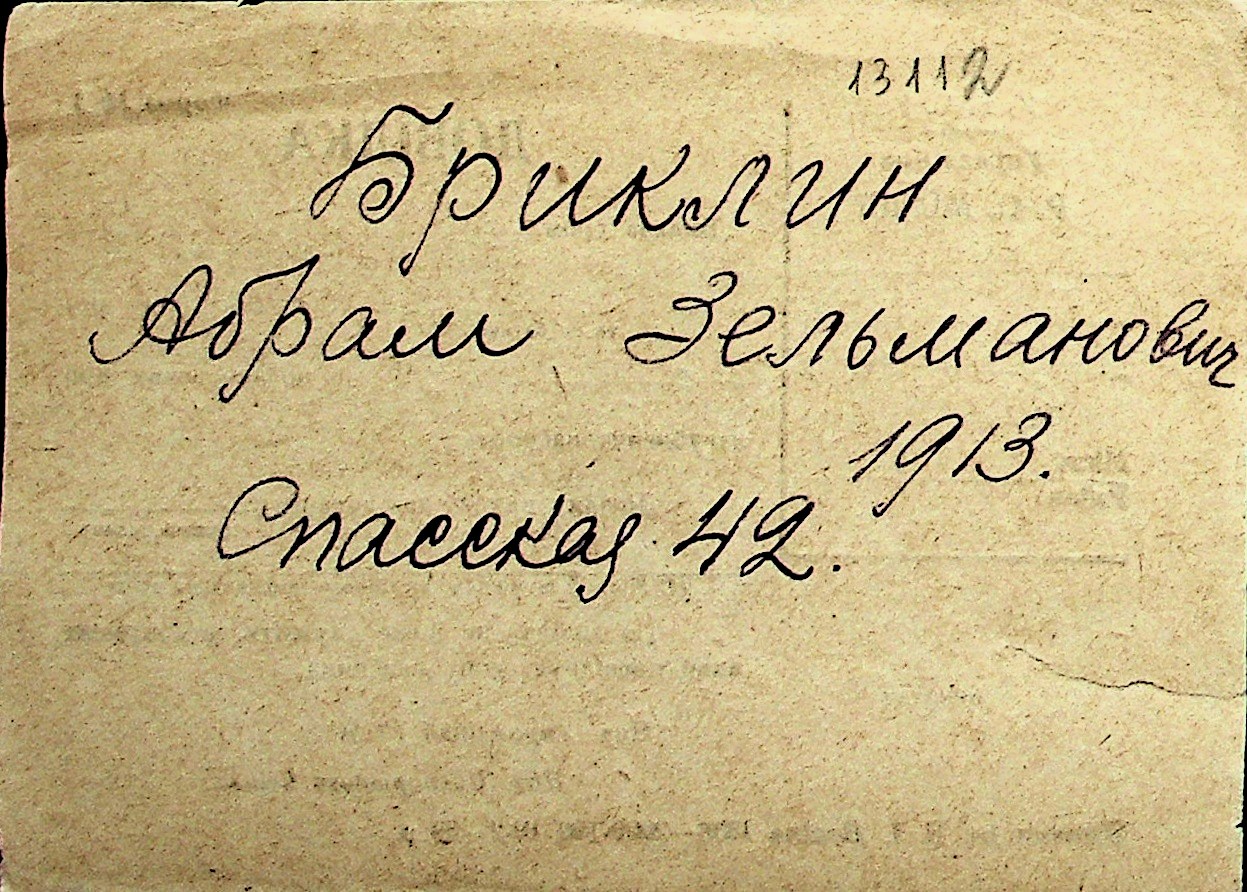 13112
Бриклин
Абрам Зельманович
1913.
Спасская 42.